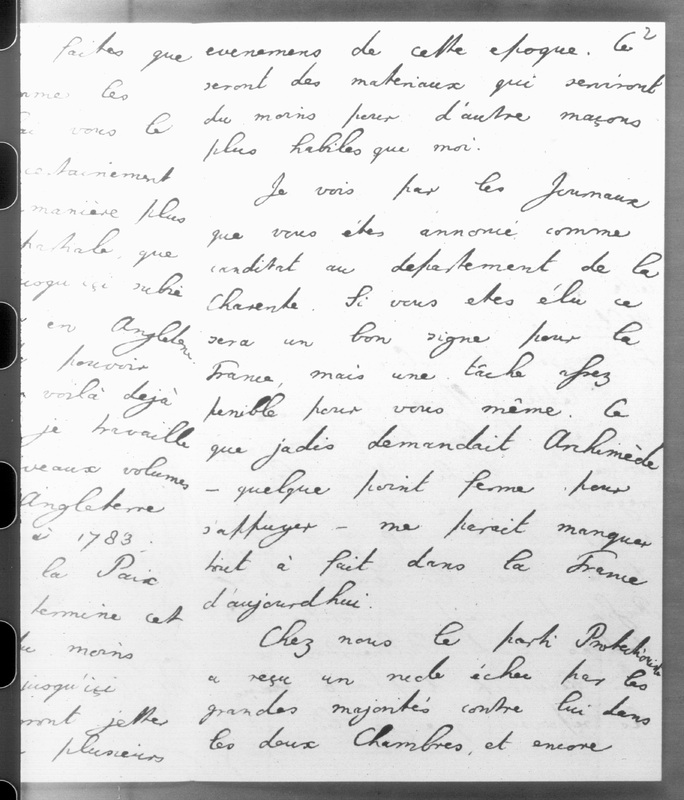 2
faites que
les
vous le
manière plus
que
jusqu'içi subie
en Angleterre
pouvoir
voilà dejà
je travaille
volumes
Angleterre
à 1783.
la Paix
termine cet
moins
jusqu'içi
jetter
plusieurs
evenemens de cette epoque. Ce
seront des materiaux qui serviront
du moins pour d'autre maçons
plus habiles que moi.
Je vois par les Journaux
que vous étes annoncé comme
canditat au departement de la
Charente. Si vous etes élu ce
sera un bon signe pour la
France, mais une tâche assez
penible pour vous même. Ce
que jadis demandait Archimède
– quelque point ferme pour
s'appuyer – me parait manquer
tout à fait dans la France
d'aujourdhui.
Chez nous le parti Protectioniste
a reçu un rude échec par les
grandes majorités contre lui dans
les deux Chambres, et encore